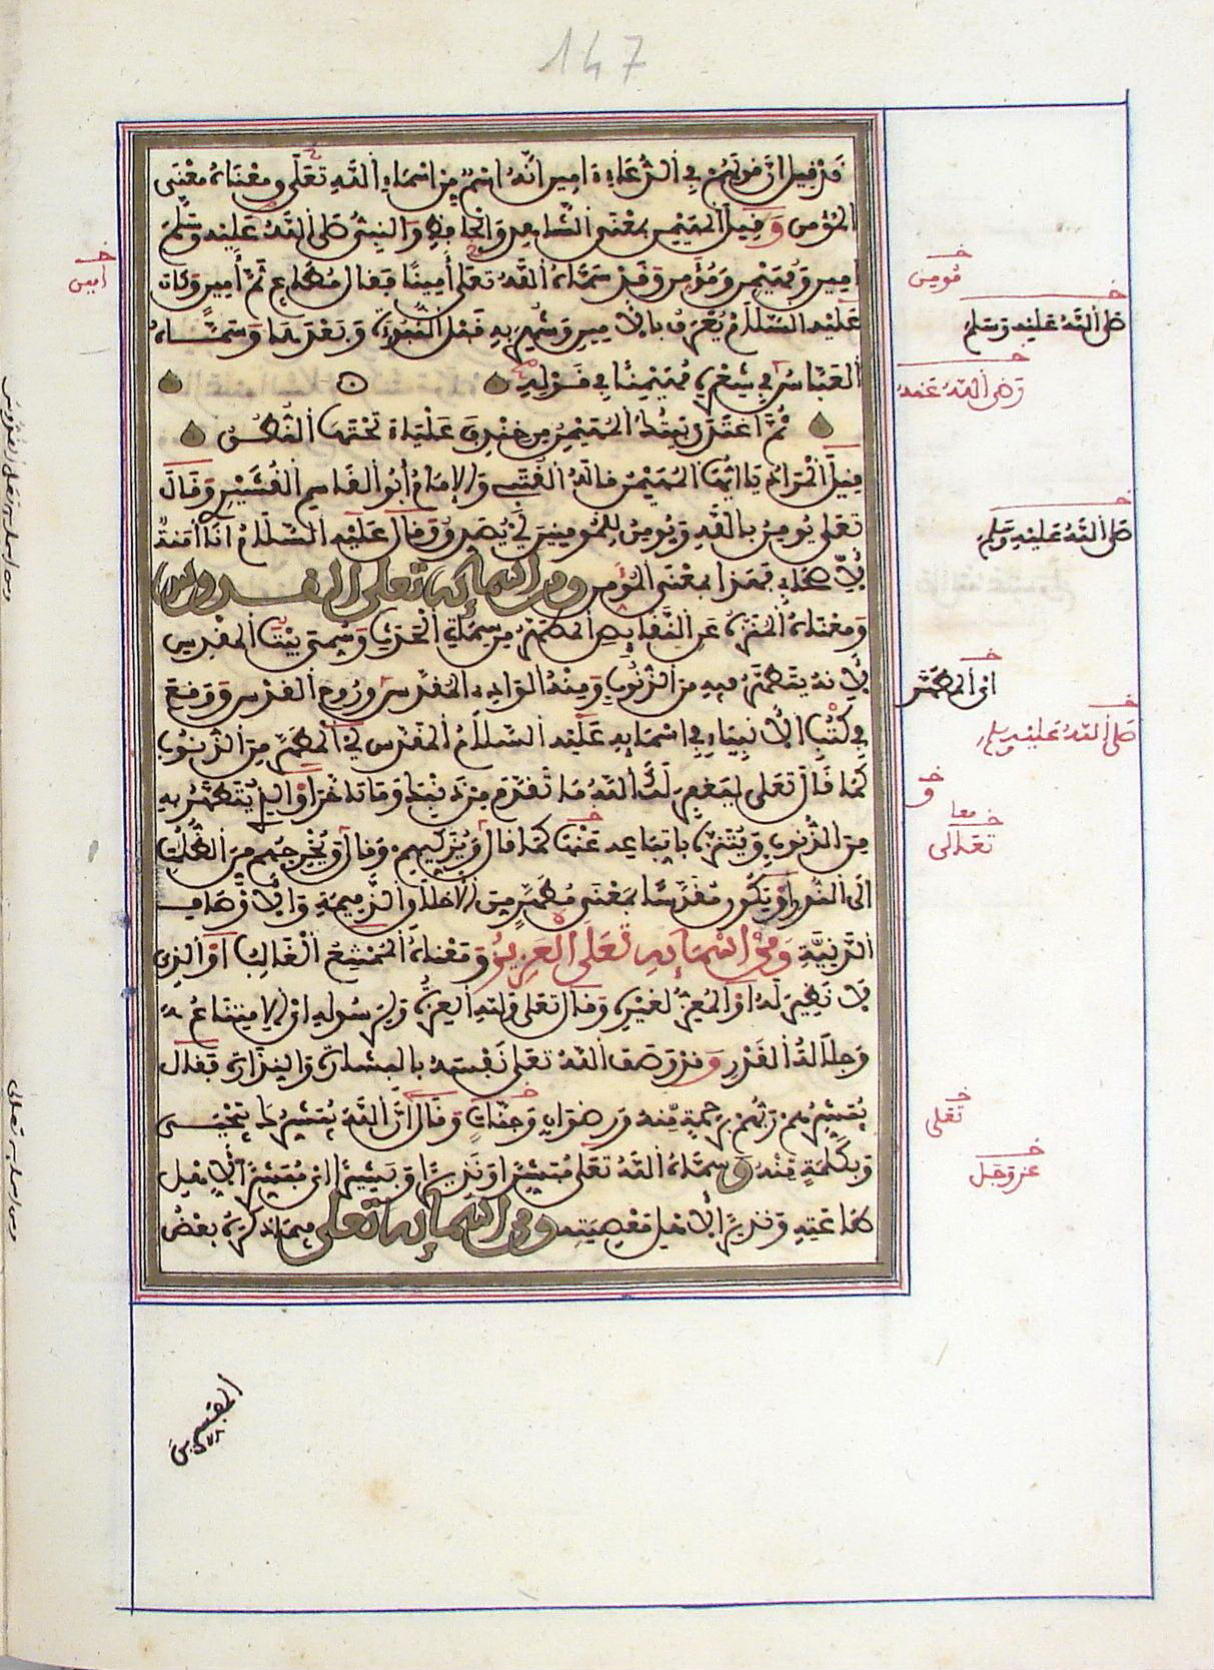 147
قَدْ قِيلَ إِنَّ قَوْلَهُمْ فِي الدُّعَاءِ ءَامِينَ أَنَّهُ اسْمٌ مِنْ أَسْمَاءِ اللَّهِ تَعَلَى وَمَعْنَاهُ مَعْنَى
الْمُؤْمِنِ وَقِيلَ الْمُهَيْمِنُ بِمَعْنَى الشَّاهِدِ وَالْحَافِظِ وَالنَّبِيُّ صَلَّى اللَّهُ عَلَيْهِ وَسَلَّمَ
أَمِينٌ وَمُهَيْمِنٌ وَمُؤْمِنٌ وَقَدْ سَمَّاهُ اللَّهُ تَعَلَى أَمِينًا فَقَالَ مُطَاعٍ ثَمَّ أَمِينٍ وَكَانَ
عَلَيْهِ السَّلَامُ يُعْرَفُ بِالْأَمِينِ وَشُهِرَ بِهِ قَبْلَ النُّبُوَّةِ وَبَعْدَهَا وَسَمَّاهُ
الْعَبَّاسُ فِي شِعْرِهِ مُهَيْمِنًا فِي قَوْلِهِ
ثُمَّ اغْتَدَى بَيْتُكَ الْمُهَيْمِنُ مِنْ خِنْدِفَ عَلْيَاءَ تَحْتَهَا النُّطُقُ
قِيلَ الْمُرَادُ يَا أَيُّهَا الْمُهَيْمِنُ قَالَهُ الْقُتَبِي وَالْإِمَامُ أَبُو الْقَاسِمِ الْقُشَيْرِي وَقَالَ
تَعَلَى يُومِنُ بِاللَّهِ وَيُومِنُ لِلْمُومِنِينَ أَيْ يُصَدِّقُ وَقَالَ عَلَيْهِ السَّلَامُ أَنَا أَمَنَةٌ
لِأَصْحَابِي فَهَذَا بِمَعْنَى الْمُؤْمِنِ وَمِنْ أَسْمَائِهِ تَعَلَى الْقُدُّوسُ
وَمَعْنَاهُ الْمُنَزَّهُ عَنِ النَّقَائِصِ الْمُطَهَّرُ مِنْ سِمَاتِ الْحَدَثِ وَسُمِّيَ بَيْتُ الْمَقْدِسِ
لِأَنَّهُ يُتَطَهَّرُ فِيهِ مِنَ الذُّنُوبِ وَمِنْهُ الْوَادِي الْمُقَدَّسُ وَرُوحُ الْقُدُسِ وَوَقَعَ
فِي كُتُبِ الْأَنْبِيَاءِ فِي أَسْمَائِهِ عَلَيْهِ السَّلَامُ الْمُقَدَّسُ أَيِ الْمُطَهَّرُ مِنَ الذُّنُوبِ
كَمَا قَالَ تَعَلَى لِيَغْفِرَ لَكَ اللَّهُ مَا تَقَدَّمَ مِنْ ذَنْبِكَ وَمَا تَأَخَّرَ أَوِ الَّذِي يُتَطَهَّرُ بِهِ
مِنَ الذُّنُوبِ وَيُتَنَزَّهُ بِاتِّبَاعِهِ عَنْهَا كَمَا قَالَ وَيُزَكِّيهِمْ وَقَالَ وَيُخْرِجُهُم مِنَ الظُّلُمَاتِ
إِلَى النُّورِ أَوْ يَكُونُ مُقَدَّسًا بِمَعْنَى مُطَهَّرٍ مِنَ الْأَخْلَاقِ الذَّمِيمَةِ وَالْأَوْصَافِ
الدَّنِيَّةِ وَمِنْ أَسْمَائِهِ تَعَلَى الْعَزِيزُ وَمَعْنَاهُ الْمُمْتَنِعُ الْغَالِبُ أَوِ الَّذِي
لَا نَظِيرَ لَهُ أَوِ الْمُعِزُّ لِغَيْرِهِ وَقَالَ تَعَلَى وَلِلَّهِ الْعِزَّةُ وَلِرَسُولِهِ أَيِ الِامْتِنَاعُ
وَجَلَالَةُ الْقَدْرِ وَقَدْ وَصَفَ اللَّهُ تَعَلَى نَفْسَهُ بِالْبِشَارَةِ وَالنِّذَارَةِ فَقَالَ
يُبَشِّرُهُمْ رَبُّهُمْ بِرَحْمَةٍ مِنْهُ وَرِضْوَانٍ وَجَنَّاتٍ وَقَالَ أَنَّ اللَّهَ يُبَشِّرُكَ بِيَحْيَى
وَبِكَلِمَةٍ مِنْهُ وَسَمَّاهُ اللَّهُ تَعَلَى مُبَشِّرًا وَنَذِيرًا وَبَشِيرًا أَيْ مُبَشِّرًا لِأَهْلِ
طَاعَتِهِ وَنَذِيرًا لِأَهْلِ مَعْصِيَتِهِ وَمِنْ أَسْمَائِهِ تَعَلَى فِيمَا ذَكَرَهُ بَعْضُ
أمين
مُومِن
صَلَّى اللَّهُ عَلَيْهِ وَسَلَّم
رَضِيَ اللَّهُ عَنْهُ
صَلَّى اللَّهُ عَلَيْهِ وَسَلَّم
أي المطهّر
صَلَّى اللَّهُ عَلَيْهِ وَسَلَّم
و
معا
تَعَالَى
تَعَلَى
عز وجل
المفسرين